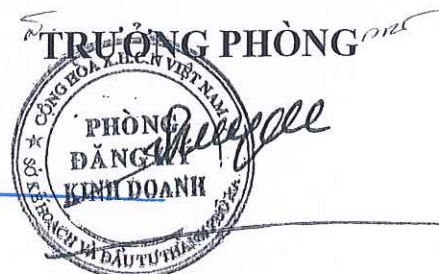 TRƯỞNG PHÒNG
CỘNG HÒA X.H.C.N VIỆT NAM
PHÒNG
ĐĂNG KÝ
KINH DOANH
SỞ KẾ HOẠCH VÀ ĐẦU TƯ THÀNH PHỐ